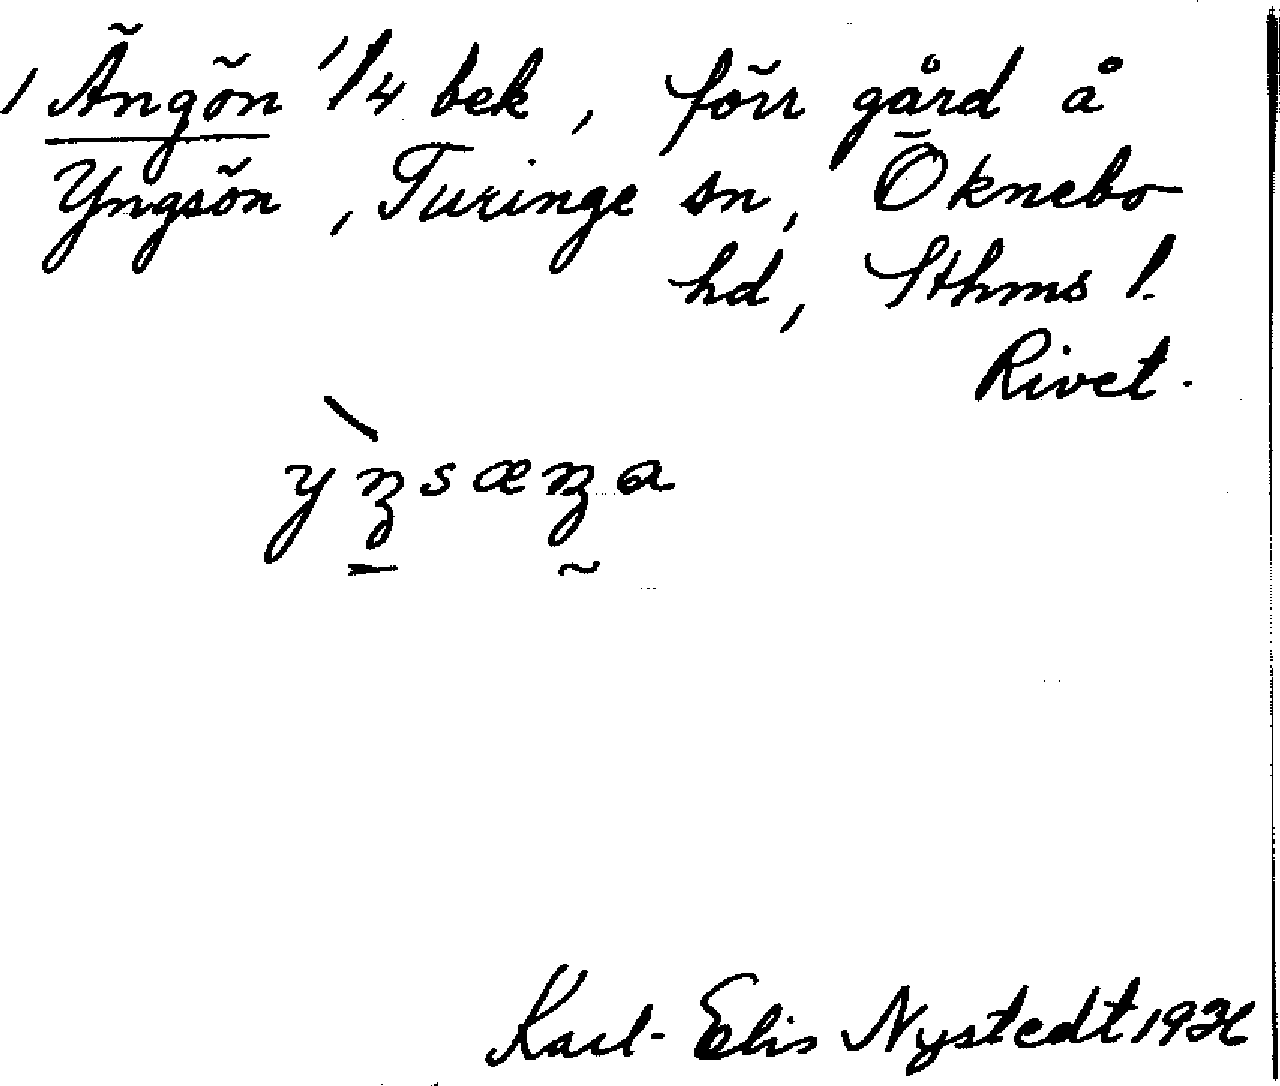 1 Ängön 1/4 bek, förr gård å
Yngsön, Turinge sn, Öknebo
hd, Sthms l.
Rivet.
Karl-Elis Nystedt 1936